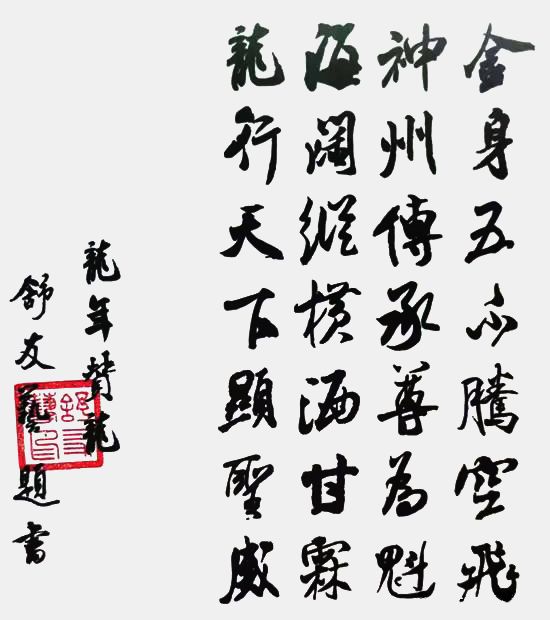 金身五爪騰空飛
神州傳承尊為魁
海闊縱橫洒甘霖
龍行天下顯聖威
龍年贊龍
舒友藝題書
舒友藝印